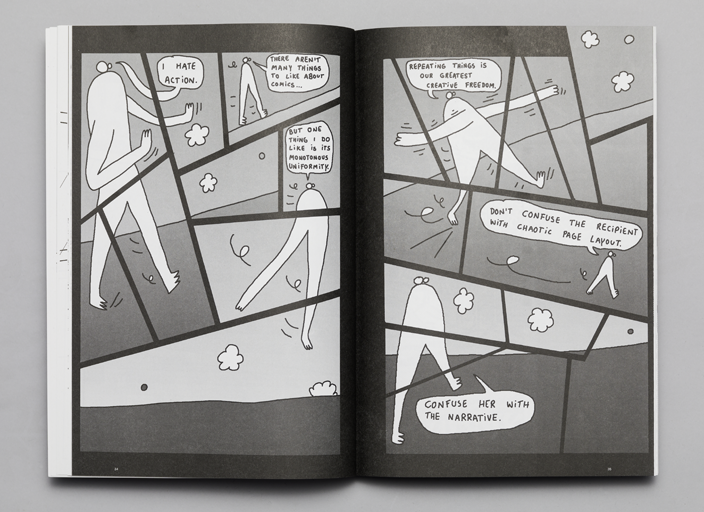 I HATE
ACTION.
THERE AREN'T
MANY THINGS
TO LIKE ABOUT
COMICS...
BUT ONE
THING I DO
LIKE IS ITS
MONOTONOUS
UNIFORMITY.
REPEATING THINGS IS
OUR GREATEST
CREATIVE FREEDOM.
DON'T CONFUSE THE RECIPIENT
WITH CHAOTIC PAGE LAYOUT.
CONFUSE HER WITH
THE NARRATIVE.